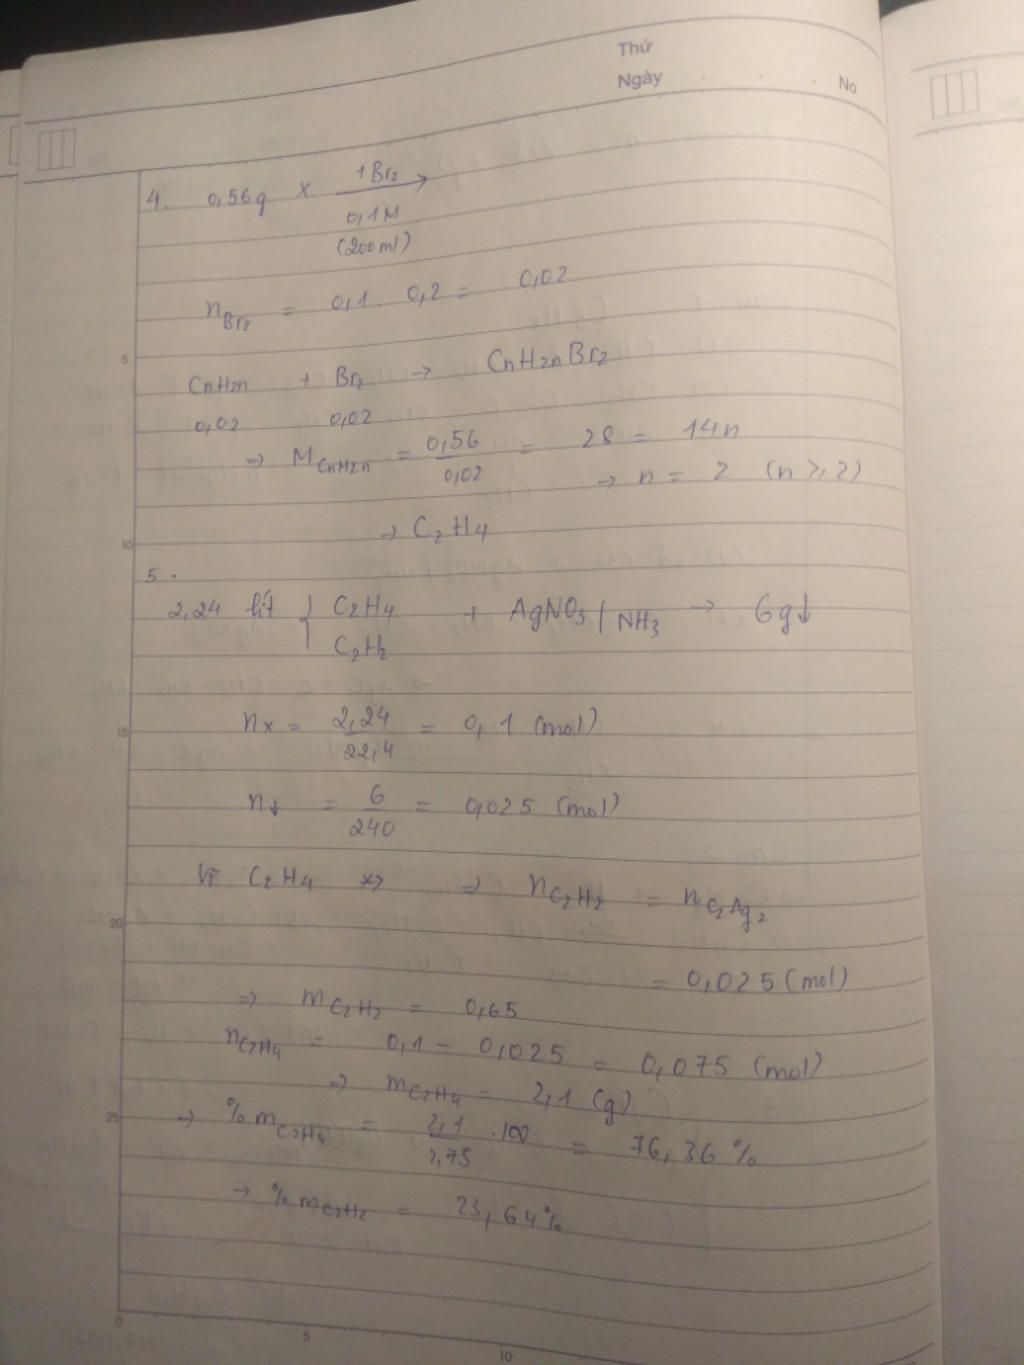 Thứ
Ngày . . . No
4. 0,56g X 1Br₂ →
0,1M
(200ml)
n_Br₂ = 0,1 . 0,2 = 0,02
5
CnH2n + Br₂ → CnH2nBr₂
0,02 0,02
=> M_CnH2n = 0,56 / 0,02 = 28 = 14n
→ n = 2 (n ≥ 2)
10
→ C₂H₄
5.
2,24 lít { C₂H₄ + AgNO₃ | NH₃ → 6g↓
C₂H₂
15
nx = 2,24 / 22,4 = 0,1 (mol)
n↓ = 6 / 240 = 0,025 (mol)
Vì C₂H₄ ⇏ => n_C₂H₂ = n_C₂Ag₂
20
= 0,025 (mol)
=> m_C₂H₂ = 0,65
n_C₂H₄ = 0,1 - 0,025 = 0,075 (mol)
=> m_C₂H₄ = 2,1 (g)
25
→ %m_C₂H₄ = 2,1 / 2,75 .100 = 76,36 %
→ %m_C₂H₂ = 23,64%
0 5 10